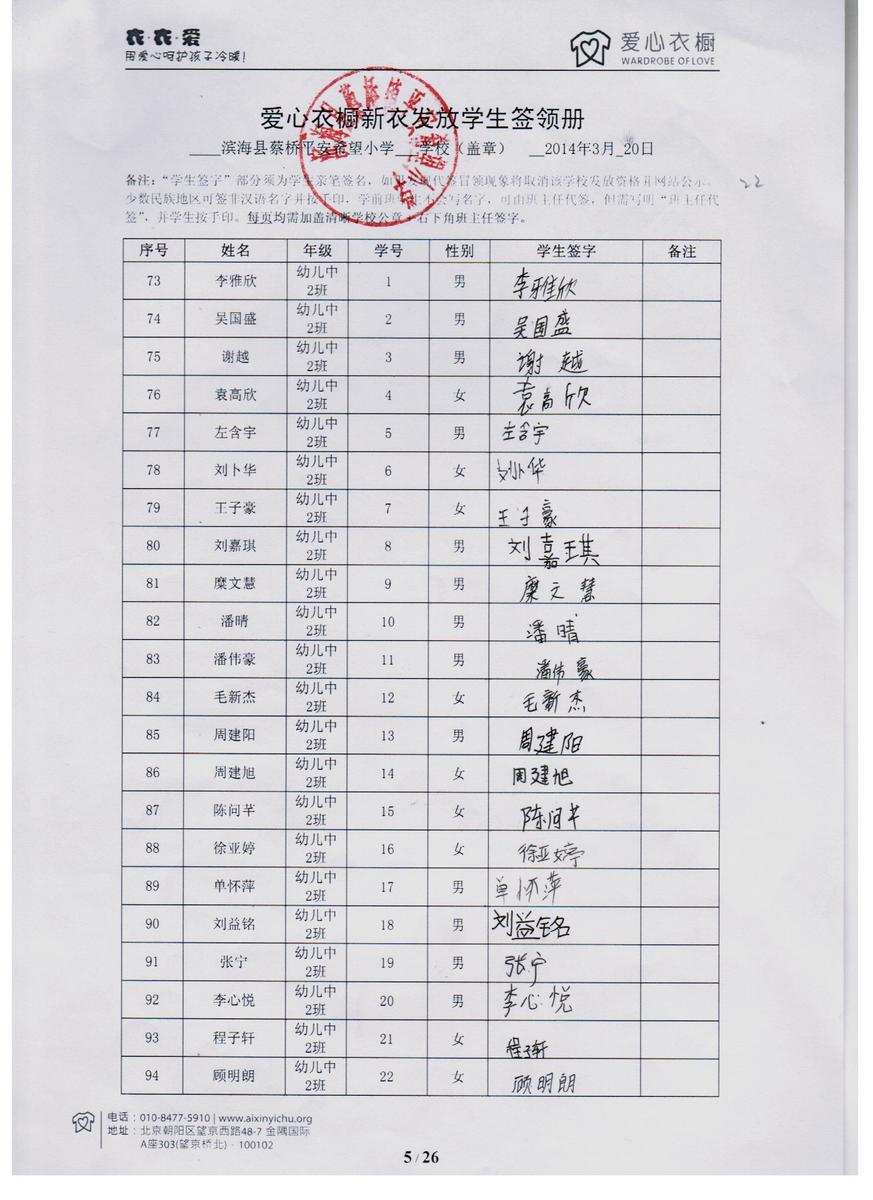 衣·衣·爱
用爱心呵护孩子冷暖!
爱心衣橱
WARDROBE OF LOVE
爱心衣橱新衣发放学生签领册
滨海县蔡桥平安希望小学 学校（盖章） 2014年3月 20日
备注：“学生签字”部分须为学生亲笔签名，如 现代签冒领现象将取消该学校发放资格并网站公示。
22
少数民族地区可签非汉语名字并按手印，学前班 不会写名字，可由班主任代签，但需写明“班主任代
签”，并学生按手印。每页均需加盖清晰学校公章 右下角班主任签字。
序号 姓名 年级 学号 性别 学生签字 备注
73 李雅欣 幼儿中2班 1 男 李雅欣
74 吴国盛 幼儿中2班 2 男 吴国盛
75 谢越 幼儿中2班 3 男 谢越
76 袁高欣 幼儿中2班 4 女 袁高欣
77 左含宇 幼儿中2班 5 男 左含宇
78 刘卜华 幼儿中2班 6 女 刘卜华
79 王子豪 幼儿中2班 7 女 王子豪
80 刘嘉琪 幼儿中2班 8 男 刘嘉琪
81 糜文慧 幼儿中2班 9 男 糜文慧
82 潘晴 幼儿中2班 10 男 潘晴
83 潘伟豪 幼儿中2班 11 男 潘伟豪
84 毛新杰 幼儿中2班 12 女 毛新杰
85 周建阳 幼儿中2班 13 男 周建阳
86 周建旭 幼儿中2班 14 女 周建旭
87 陈问芊 幼儿中2班 15 女 陈问芊
88 徐亚婷 幼儿中2班 16 女 徐亚婷
89 单怀萍 幼儿中2班 17 男 单怀萍
90 刘益铭 幼儿中2班 18 男 刘益铭
91 张宁 幼儿中2班 19 男 张宁
92 李心悦 幼儿中2班 20 男 李心悦
93 程子轩 幼儿中2班 21 女 程子轩
94 顾明朗 幼儿中2班 22 女 顾明朗
电话：010-8477-5910 | www.aixinyichu.org
地址：北京朝阳区望京西路48-7 金隅国际
A座303(望京桥北)·100102
5 / 26